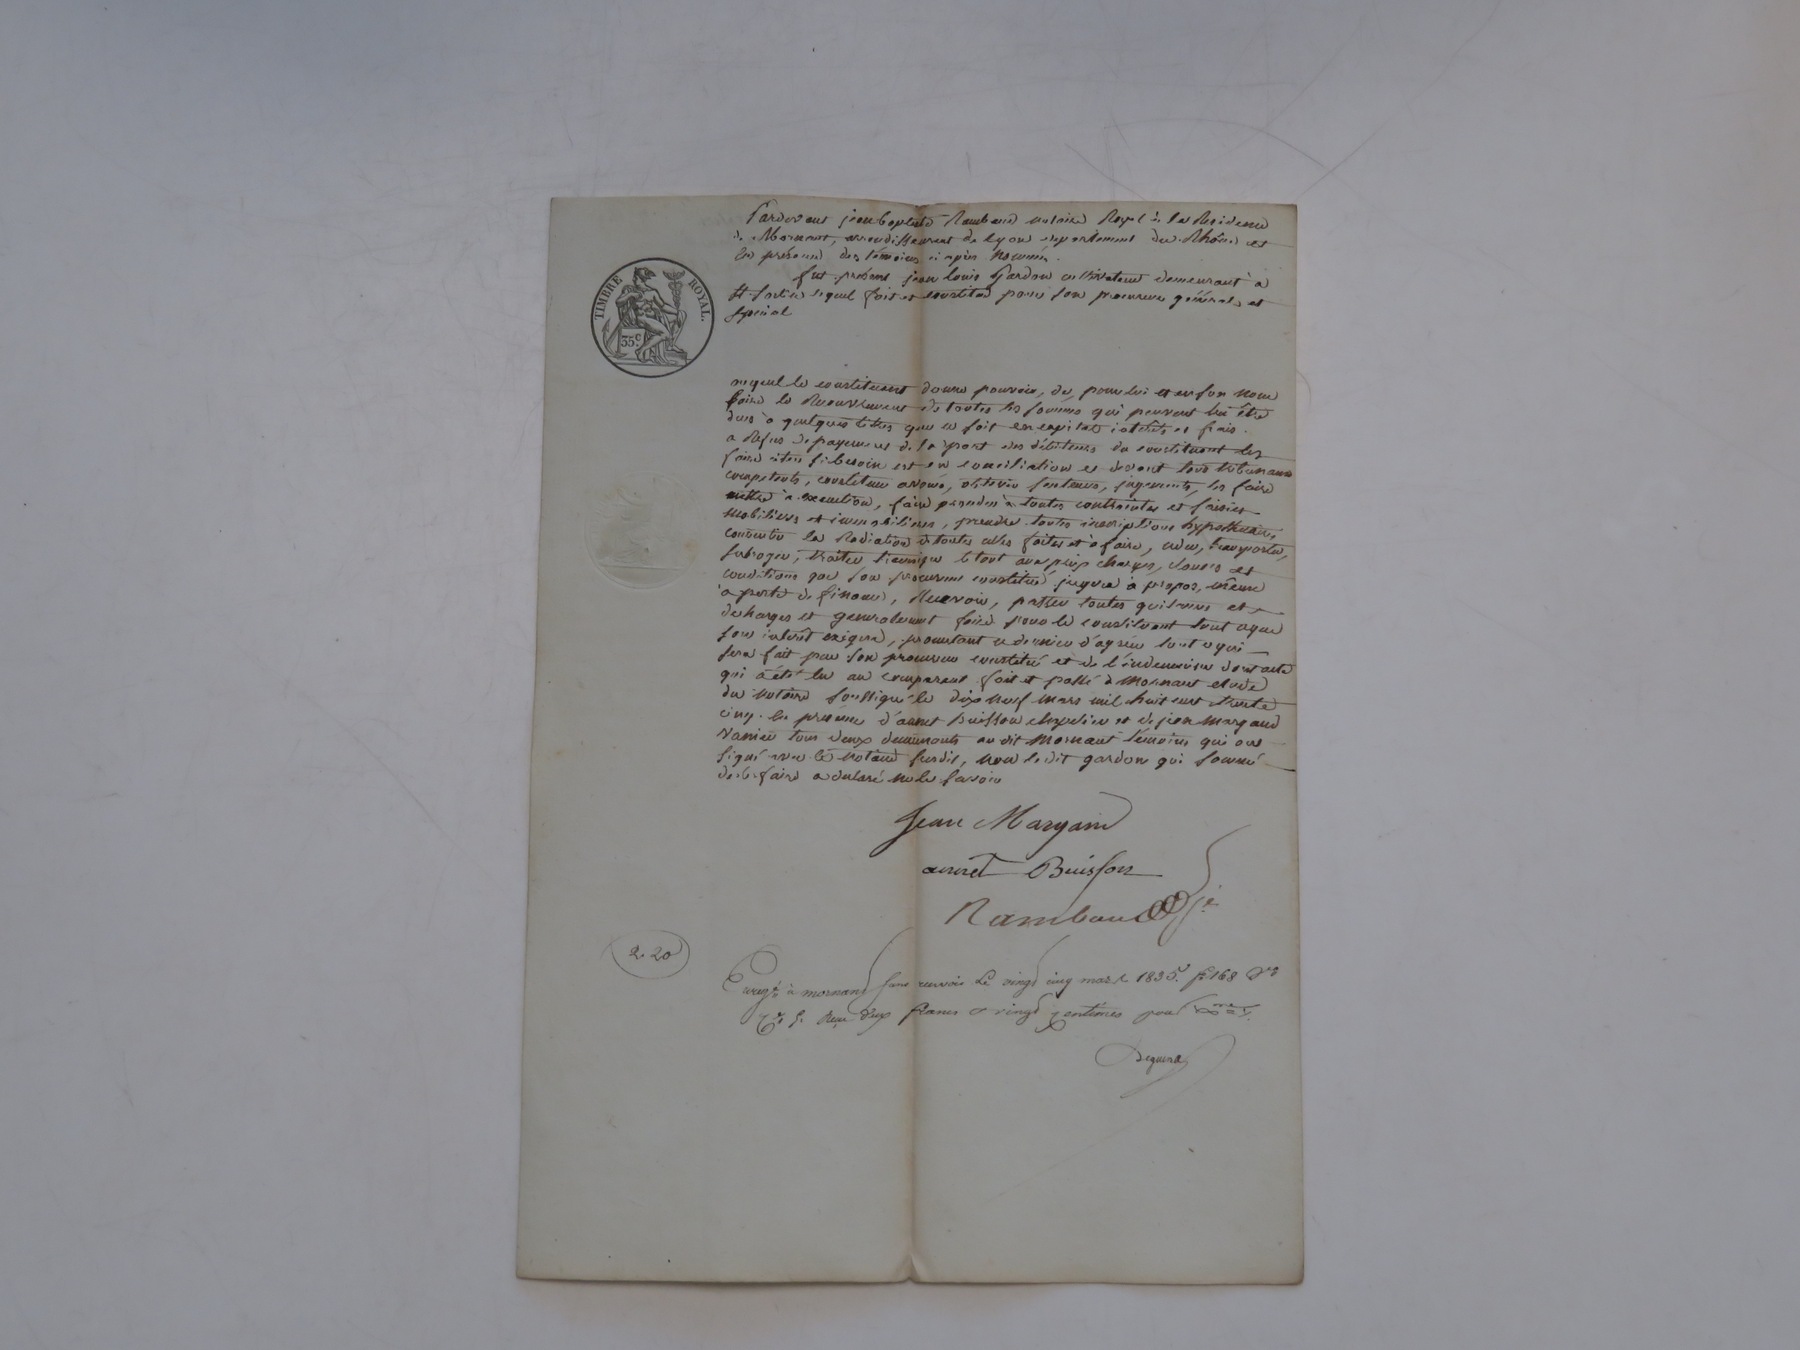 TIMBRE ROYAL.
35 c.
Pardevant jean baptiste Rambaud notaire Royal à la Residence
de Mornant, arrondissement de Lyon departement du Rhône et
en présence des témoins ci après Nommés.
fut présent jean Louis Gardon cultivateur demeurant à
lequel fait et constitue pour son procureur général et
spécial
auquel le constituant donne pouvoir, de, pour lui et en son nom
faire le Recouvrement de toutes les sommes qui peuvent lui être
dues à quelques titres que ce soit en capital intérêts et frais.
a Refus de payement de la part des débiteurs du constituant les
faire citer si besoin est en conciliation et devant tous tribunaux
competents, constituer avoué, obtenir sentences, jugements, les faire
mettre à execution, faire procéder à toutes contraintes et saisies
mobilières et immobilières, prendre toutes inscriptions hypothecaires,
consentir la Radiation de toutes celles faites et à faire, céder, transporter,
subroger, traiter transiger le tout aux prix charges, clauses et
conditions que son procureur constitué jugera à propos, même
à perte de finance, Recevoir, passer toutes quittances et
decharges et generalement faire pour le constituant tout ce que
son intérêt exigera, promettant ce dernier d'agréer tout ce qui
sera fait par son procureur constitué et de l'indemniser dont acte
qui a été lu au comparant fait et passé à Mornant etude
du notaire soussigné le dix neuf mars mil huit cent trente
cinq. en présence d'annet Buisson chapelier et de jean Margand
vanier tous deux demeurants au dit Mornant témoins qui ont
signé avec le notaire susdit, non le dit gardon qui sommé
de le faire a déclaré ne le savoir
Jean Margain
annet Buisson
Rambaud
2.20
Enregé à mornant sans renvois Le vingt cinq mars 1835. f° 168
Reçu deux francs & vingt centimes pour